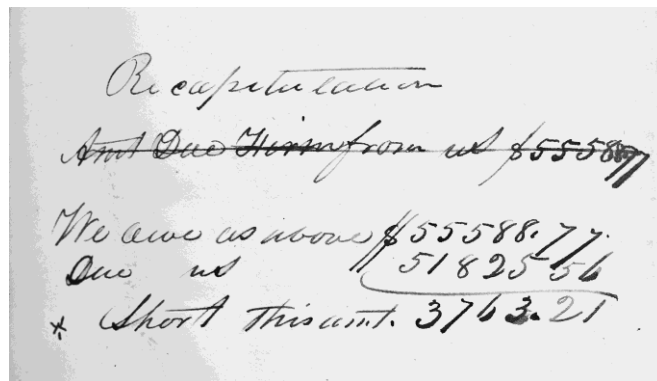 Recapitulation
Amt Due Firm from us $55588.77
We owe as above $55588.77.
Due us 51825 56
* Short this amt. 3763.21